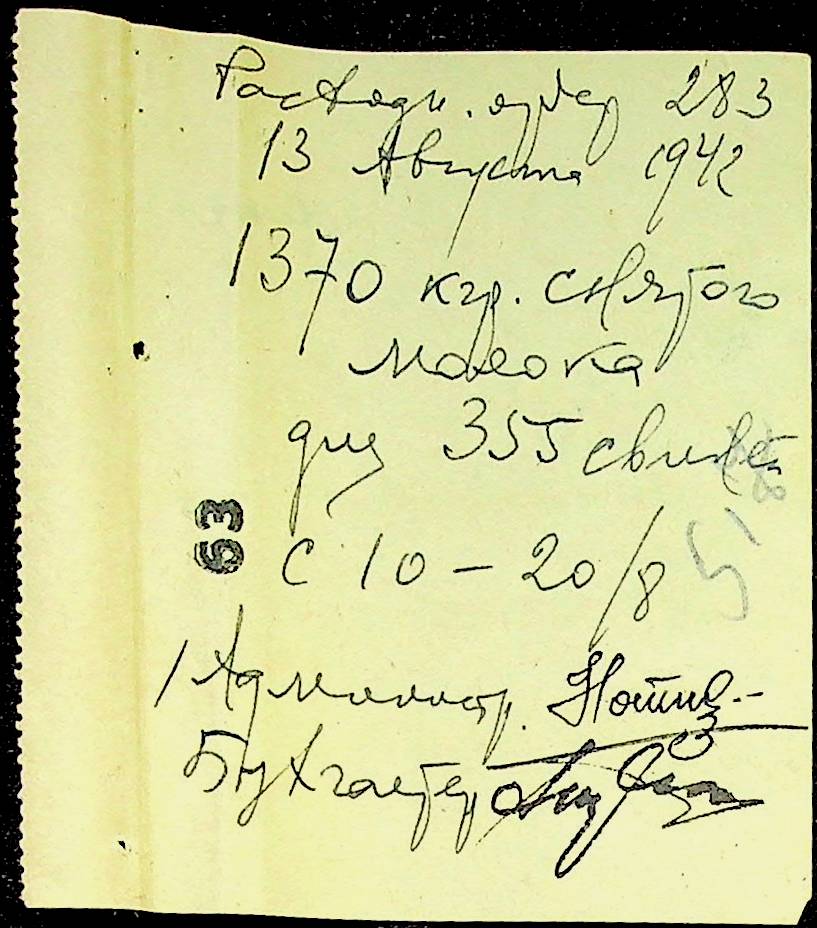 Расходн. ордер 283
13 Августа 1942
1370 кгр. снятого
молока
для 355 свиней
63
с 10 – 20/8
Администр.
Бухгалтер